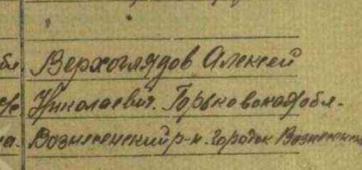 Верхоглядов Алексей
Николаевич. Горьковская обл.
Вознесенский р-н. городок